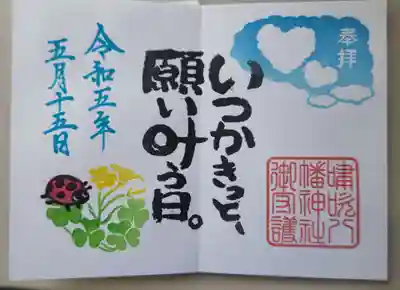 奉拝
嘯吹八
幡神社
御守護
いつかきっと、
願い叶う日。
令和五年
五月十五日